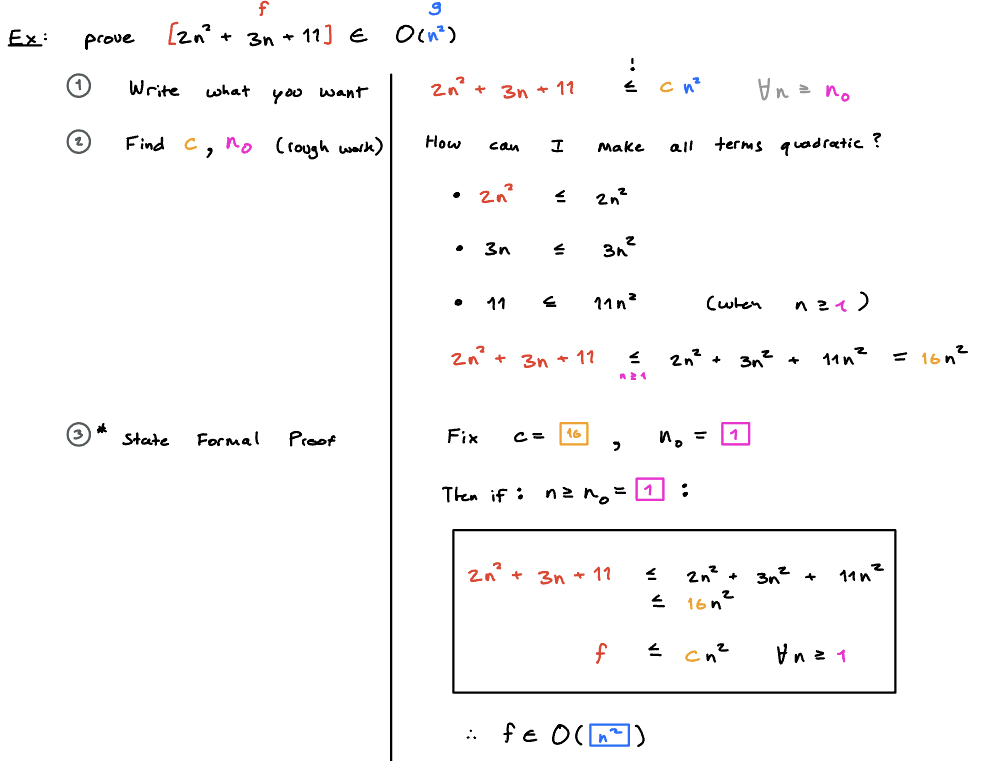 f g
Ex: prove [2n² + 3n + 11] ∈ O(n²)
① Write what you want
2n² + 3n + 11 ≤! c n² ∀n ≥ n₀
② Find c, n₀ (rough work)
How can I make all terms quadratic?
• 2n² ≤ 2n²
• 3n ≤ 3n²
• 11 ≤ 11n² (when n ≥ 1)
2n² + 3n + 11 ≤ 2n² + 3n² + 11n² = 16n²
n ≥ 1
③* State Formal Proof
Fix c = 16, n₀ = 1
Then if: n ≥ n₀ = 1 :
2n² + 3n + 11 ≤ 2n² + 3n² + 11n²
≤ 16n²
f ≤ cn² ∀n ≥ 1
∴ f ∈ O(n²)